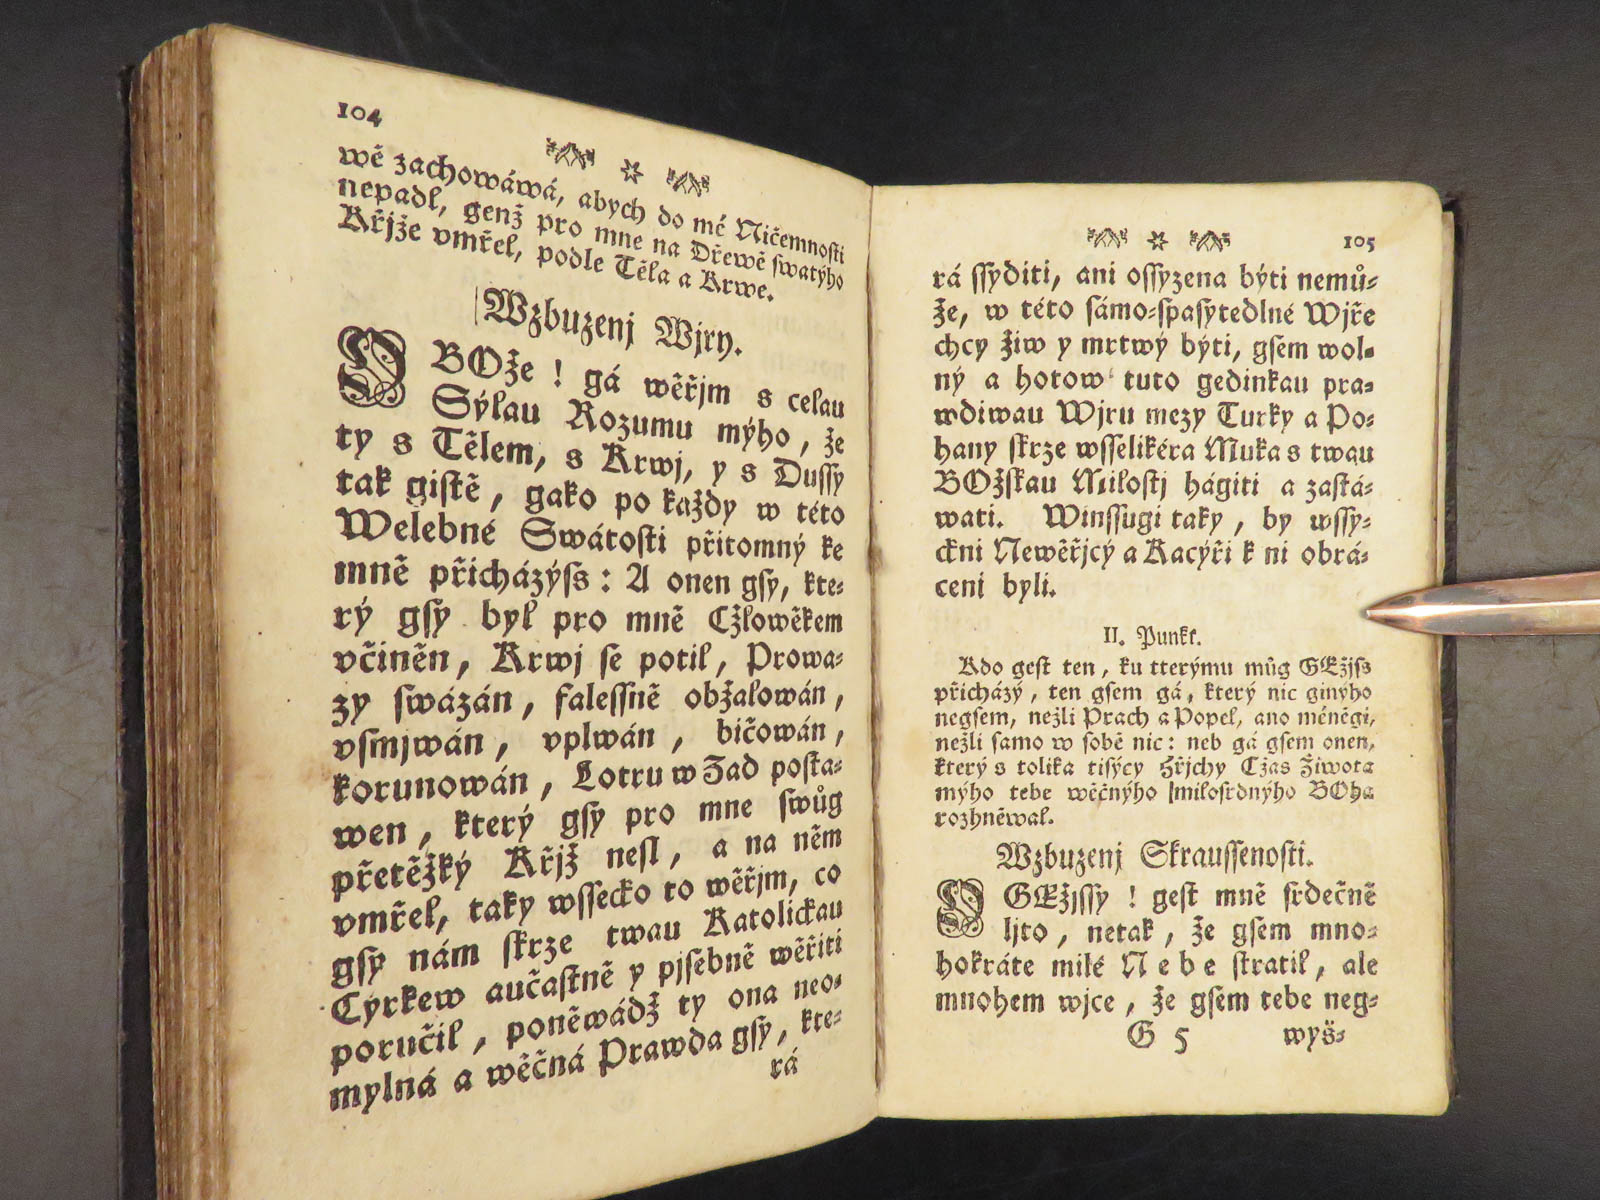 104
wě zachowáwá, abych do mé Ničemnosti
nepadl, genž pro mne na Dřewě swatýho
Křjže vmřel, podle Těla a Krwe.
Wzbuzenj Wjry.
O BOže ! gá wěřjm s celau
Sýlau Rozumu mýho, že
ty s Tělem, s Krwj, y s Dussy
tak gistě, gako po každy w této
Welebné Swátosti přitomný ke
mně přicházýss: A onen gsy, kte-
rý gsy byl pro mně Cžlowěkem
včiněn, Krwj se potil, Prowa-
zy swázán, falessně obžalowán,
vsmjwán, vplwán, bičowán,
korunowán, Lotru w Zad posta-
wen, který gsy pro mne swůg
přetěžký Křjž nesl, a na něm
vmřel, taky wssecko to wěřjm, co
gsy nám skrze twau Katolickau
Cýrkew aučastně y pjsebně wěřiti
poručil, poněwádž ty ona neo-
mylná a wěčná Prawda gsy, kte-
rá
105
rá ssyditi, ani ossyzena býti nemů-
že, w této sámo-spasytedlné Wjře
chcy žiw y mrtwý býti, gsem wol-
ný a hotow tuto gedinkau pra-
wdiwau Wjru mezy Turky a Po-
hany skrze wsselikéra Muka s twau
BOžskau Milostj hágiti a zastá-
wati. Winssugi taky, by wssy-
ckni Newěřjcý a Kacýři k ni obrá-
ceni byli.
II. Punkt.
Kdo gest ten, ku kterýmu můg GEžjss
přicházý, ten gsem gá, který nic ginýho
negsem, nežli Prach a Popel, ano méněgi,
nežli samo w sobě nic: neb gá gsem onen,
který s tolika tisýcy Hřjchy Cžas Života
mýho tebe wěčnýho milosrdnýho BOha
rozhněwal.
Wzbuzenj Skraussenosti.
O GEžjssy ! gest mně srdečně
ljto, netak, že gsem mno-
hokráte milé Nebe stratil, ale
mnohem wjce, že gsem tebe neg-
G 5 wyš-